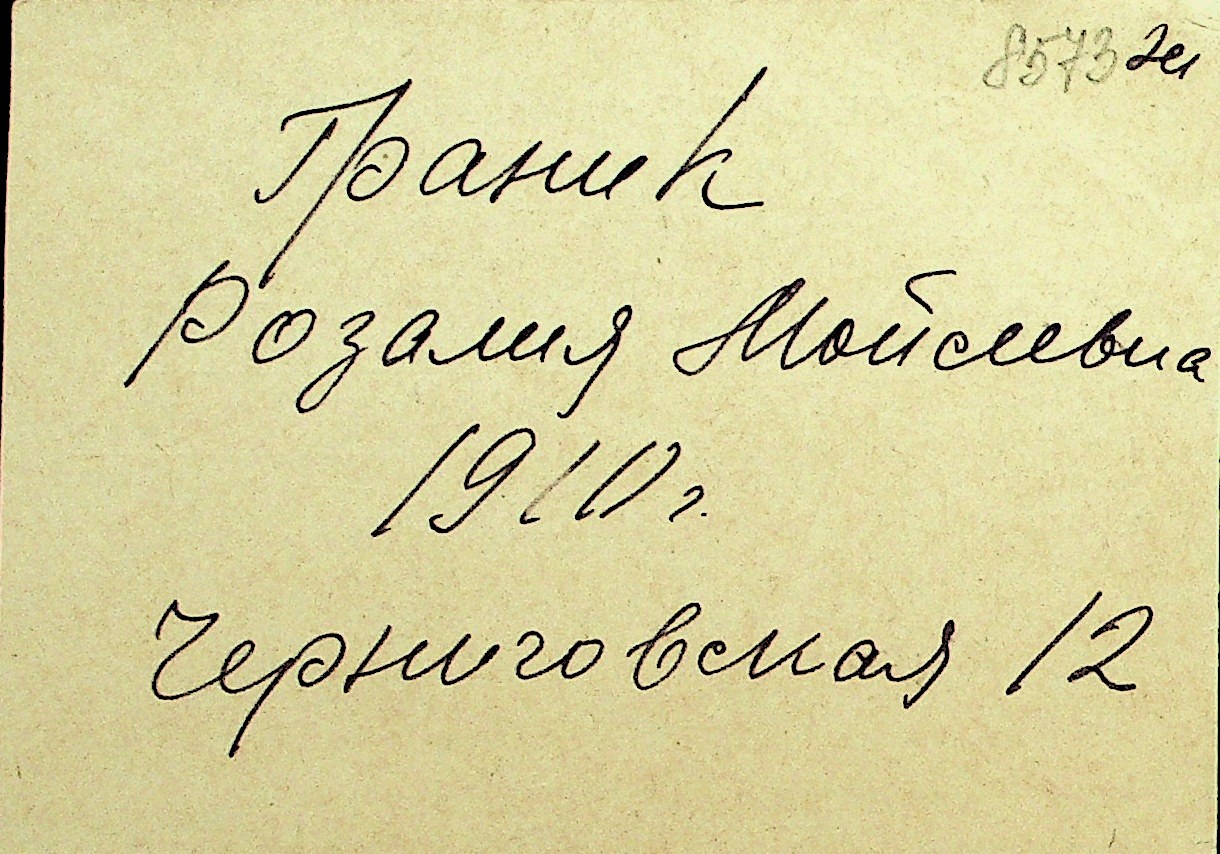 8573
Граник
Розалия Мойсеевна
1910 г.
Черниговская 12